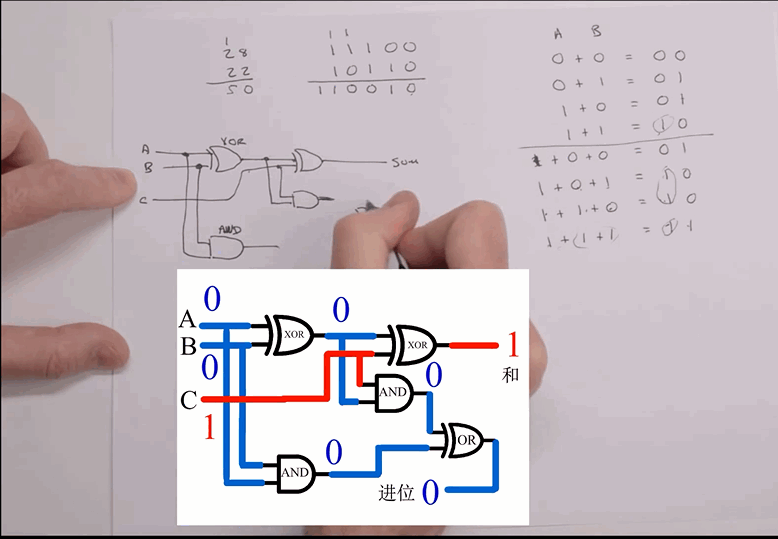 1
28
22
50
1 1
1 1 1 0 0
1 0 1 1 0
1 1 0 0 1 0
A B
0 + 0 = 0 0
0 + 1 = 0 1
1 + 0 = 0 1
1 + 1 = 1 0
1 + 0 + 0 = 0 1
1 + 0 + 1 = 1 0
1 + 1 + 0 = 1 0
1 + 1 + 1 = 1 1
A
B
C
XOR
AND
SUM
A 0
B 0
C 1
XOR
0
XOR
1
和
AND
0
AND
0
OR
进位 0